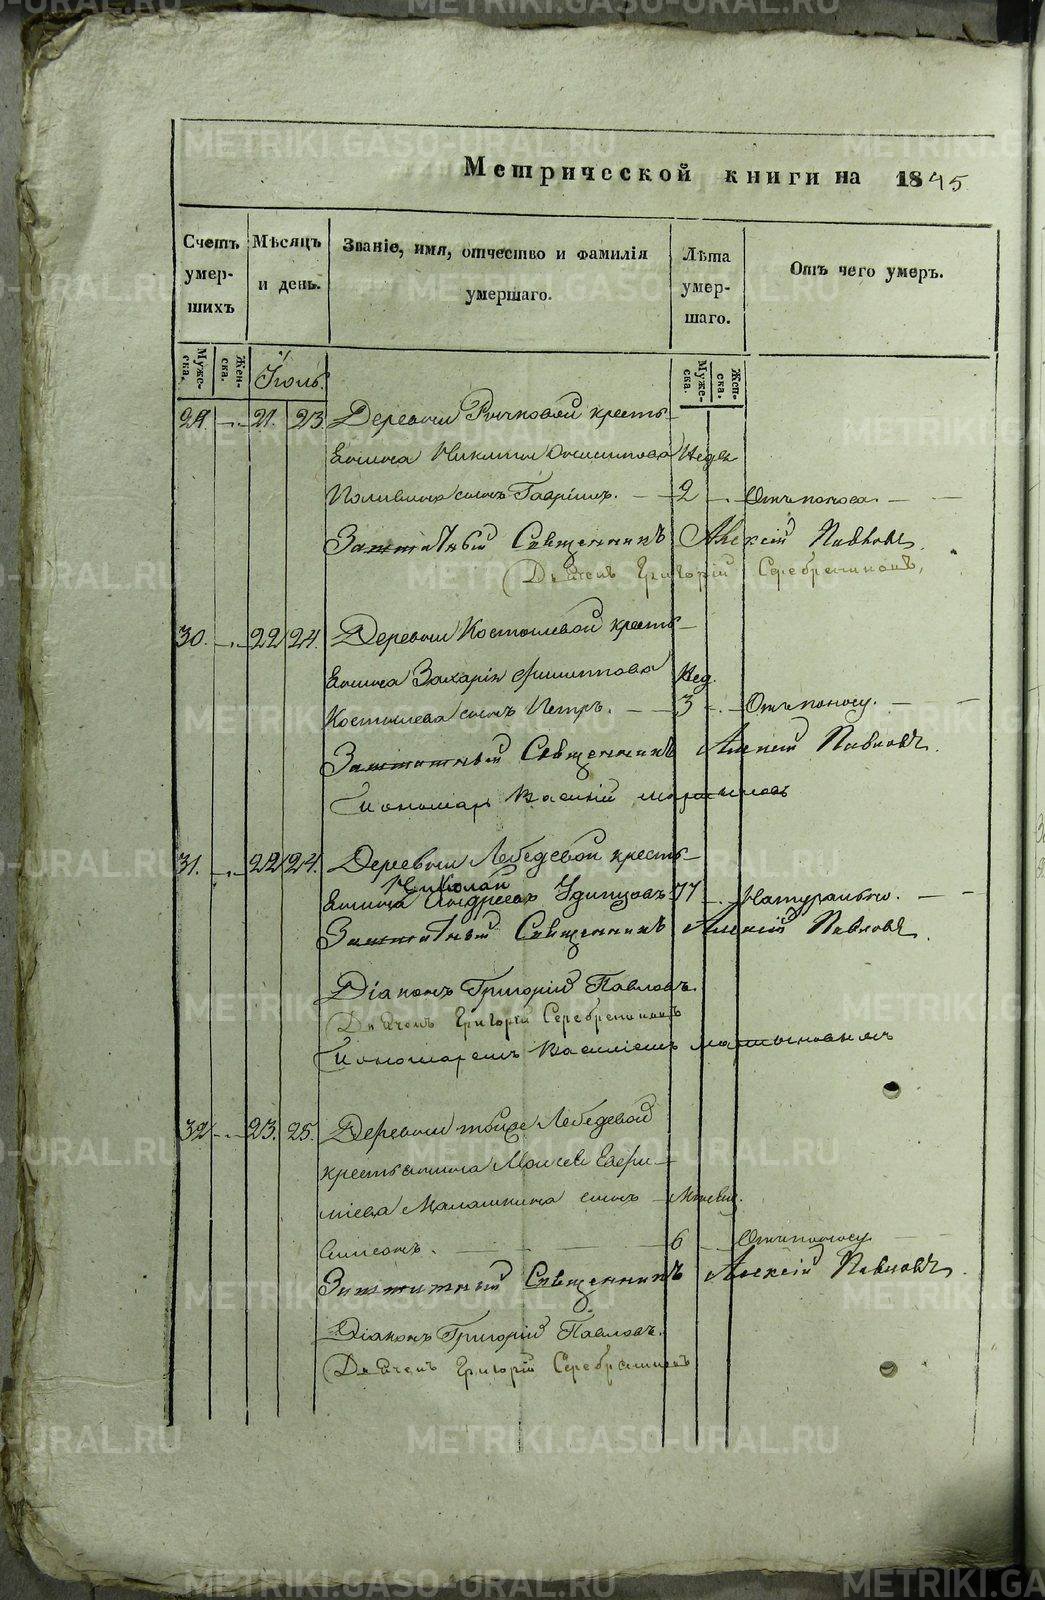 Метрической книги на 1845
Счетъ умер-шихъ
Мѣсяцъ и день.
Званіе, имя, отчество и фамилія умершаго.
Лѣта умер-шаго.
Отъ чего умеръ.
Муже-ска. Жен-ска.
Іюль.
Муже-ска. Жен-ска.
29. 21. 23. Деревни Рычковой кресть-
янина Никиты Недел
сынъ Гавріилъ. 2 Отъ поноса.
Заштатный Священникъ Алексій Павловъ.
Дьячекъ Григорій Серебрениковъ.
30. 22 24. Деревни Костылевой кресть-
янина Захарія Филиппова Нед.
Костылева сынъ Петръ. 3 Отъ поносу.
Заштатный Священникъ Алексій Павловъ.
Пономарь Василій Мартыновъ
31. 22 24. Деревни Лебедевой кресть-
Николай
янина Андреевъ Удинцовъ 77 Натурально.
Заштатный Священникъ Алексій Павловъ.
Діаконъ Григорій Павловъ.
Дьячекъ Григорій Серебрениковъ
Пономаремъ Василіемъ Мартыновымъ
32 23. 25. Деревни тойже Лебедевой
крестьянина Моисея
Малашкина сынъ
Симеонъ. 6 Отъ поносу
Заштатный Священникъ Алексій Павловъ.
Діаконъ Григорій Павловъ.
Дьячекъ Григорій Серебрениковъ
METRIKI.GASO-URAL.RU